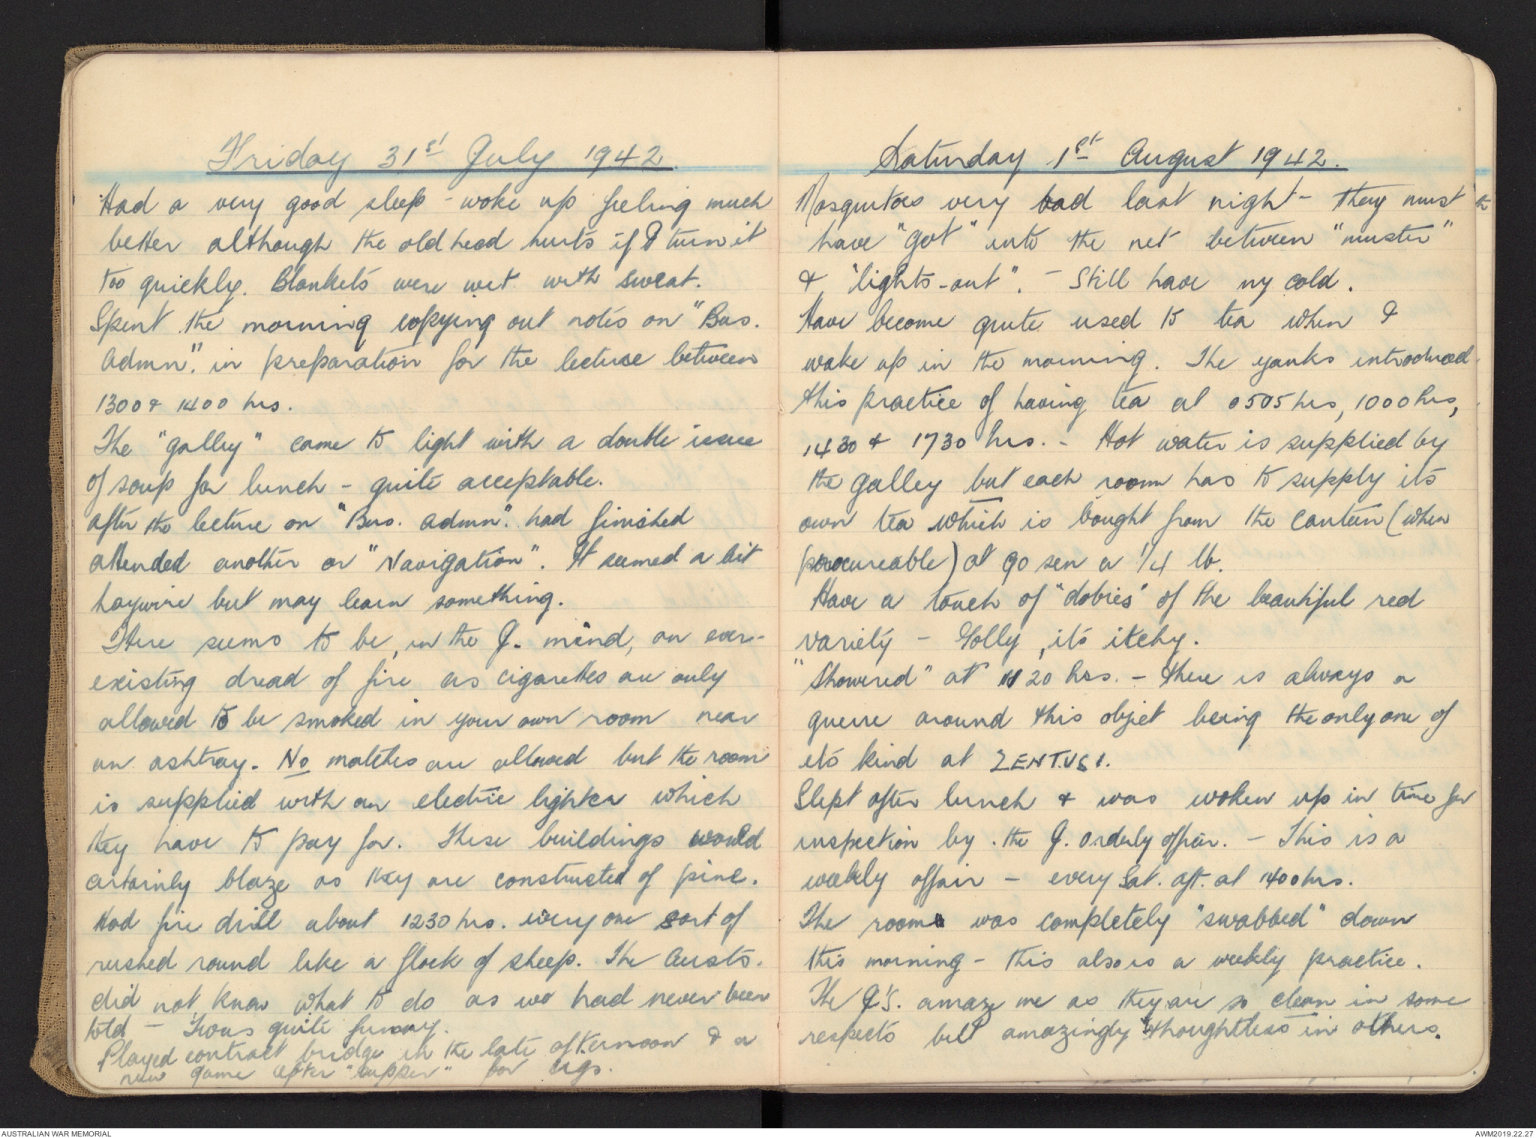 Friday 31st July 1942.
Had a very good sleep - woke up feeling much
better although the old head hurts if I turn it
too quickly. Blankets were wet with sweat.
Spent the morning copying out notes on "Bus.
Admn." in preparation for the lecture between
1300 & 1400 hrs.
The "galley" came to light with a double issue
of soup for lunch - quite acceptable.
After the lecture on "Bus. Admn". had finished
attended another on "Navigation". It seemed a bit
haywire but may learn something.
There seems to be, in the J. mind, an ever-
existing dread of fire as cigarettes are only
allowed to be smoked in your own room near
an ashtray. No matches are allowed but the room
is supplied with an electric lighter which
they have to pay for. These buildings would
certainly blaze as they are constructed of pine.
Had fire drill about 1230 hrs. everyone sort of
rushed round like a flock of sheep. The Austs.
did not know what to do as we had never been
told - Twas quite funny.
Played contract bridge in the late afternoon & a
new game after "supper" for cigs.
Saturday 1st August 1942.
Mosquitoes very bad last night - they must
have "got" into the net between "muster"
& "lights-out". - Still have my cold.
Have become quite used to tea when I
wake up in the morning. The yanks introduced
this practice of having tea at 0505 hrs, 1000 hrs,
1430 & 1730 hrs. - Hot water is supplied by
the galley but each room has to supply its
own tea which is bought from the canteen (when
procureable) at 90 sen a 1/4 lb.
Have a touch of "dobies" of the beautiful red
variety - Golly, its itchy.
"Showered" at 1120 hrs. - there is always a
queue around this objet being the only one of
its kind at ZENTUSI.
Slept after lunch & was woken up in time for
inspection by the J. orderly officer. - This is a
weekly affair - every Sat. aft. at 1400 hrs.
The room was completely "swabbed" down
this morning - this also is a weekly practice.
The J's. amaze me as they are so clean in some
respects but amazingly thoughtless in others.
AUSTRALIAN WAR MEMORIAL
AWM2019.22.27